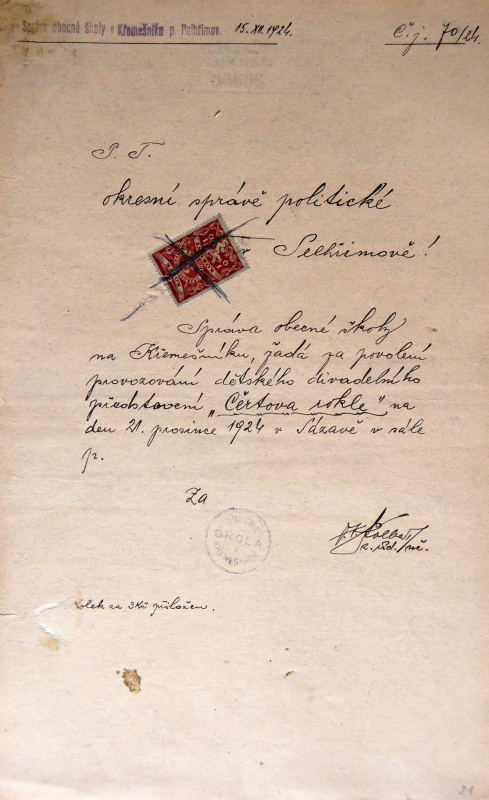 Správa obecné školy v Křemešníku p. Pelhřimov. 15. XII. 1924. Č. j. 70/24.
P. T.
okresní správě politické
v Pelhřimově!
Správa obecné školy
na Křemešníku, žádá za povolení
provozování dětského divadelního
představení „Čertova rokle" na
den 21. prosince 1924 v Sázavě v sále
p.
Za
OBECNÁ
ŠKOLA
KŘEMEŠNÍK
kolek za 3 Kč přiložen.
21